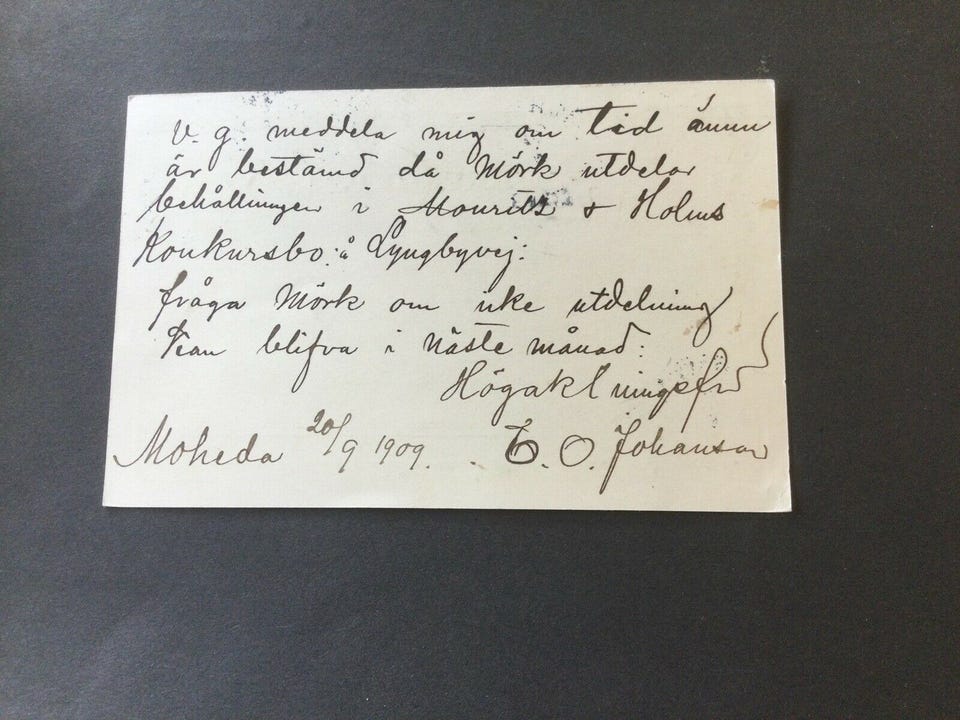 V. g. meddela mig om tid ännu
är bestämd då Mörk utdelar
behållningen i Mouritz & Holms
Konkursbo å Lyngbyvej:
fråga Mörk om icke utdelning
kan blifva i näste månad:
Högaktningsfu
Moheda 20/9 1909. O. Johanson